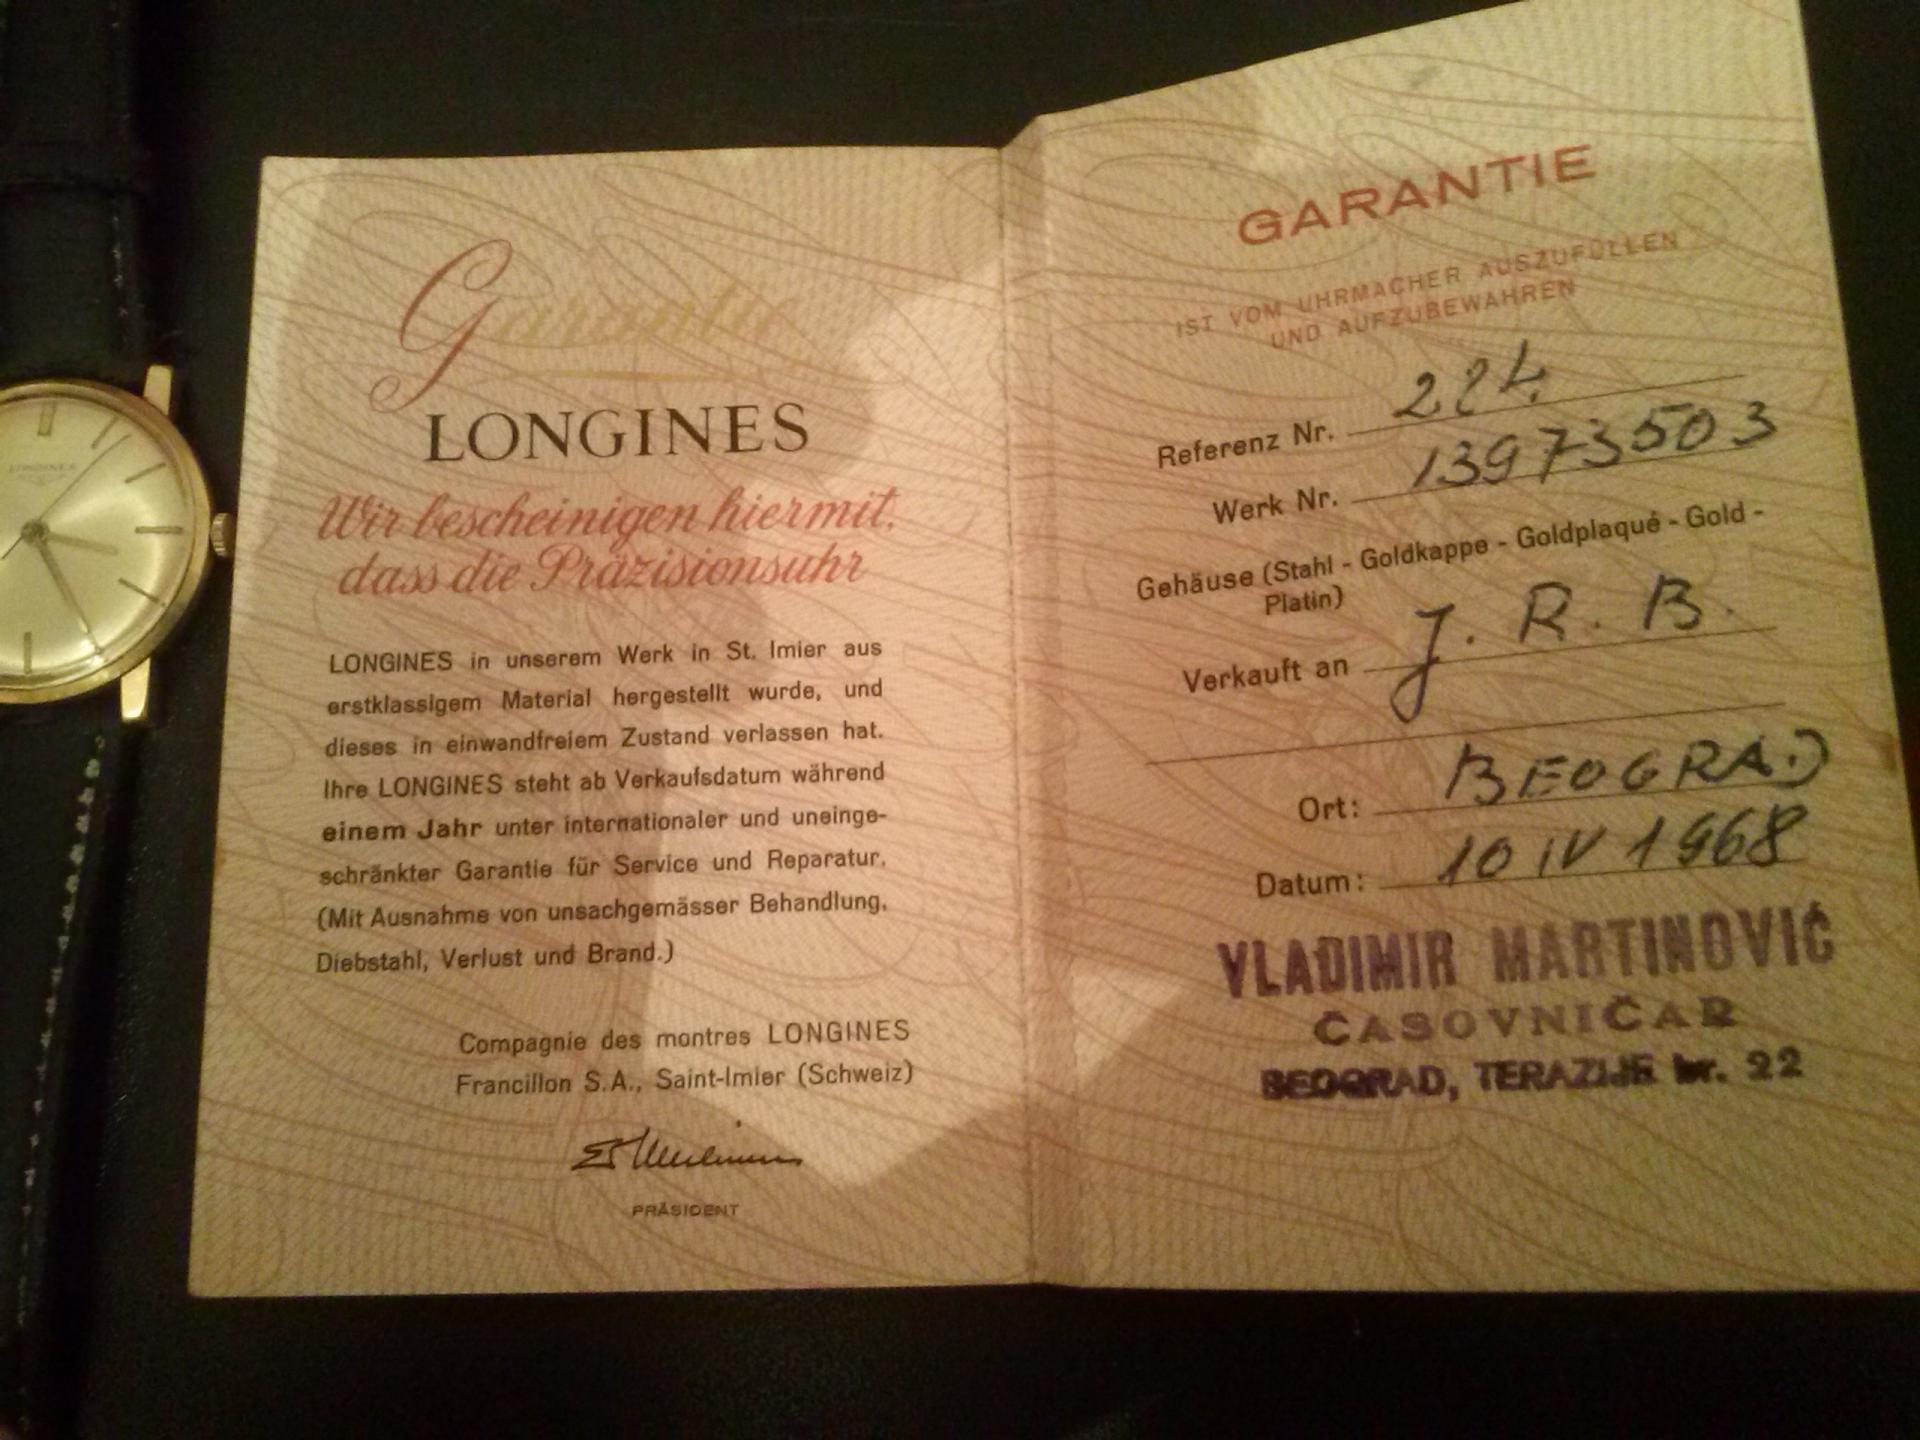 LONGINES
Garantie
LONGINES
Wir bescheinigen hiermit,
dass die Präzisionsuhr
LONGINES in unserem Werk in St. Imier aus
erstklassigem Material hergestellt wurde, und
dieses in einwandfreiem Zustand verlassen hat.
Ihre LONGINES steht ab Verkaufsdatum während
einem Jahr unter internationaler und uneinge-
schränkter Garantie für Service und Reparatur.
(Mit Ausnahme von unsachgemässer Behandlung,
Diebstahl, Verlust und Brand.)
Compagnie des montres LONGINES
Francillon S.A., Saint-Imier (Schweiz)
PRÄSIDENT
GARANTIE
IST VOM UHRMACHER AUSZUFÜLLEN
UND AUFZUBEWAHREN
Referenz Nr. 224
Werk Nr. 13973503
Gehäuse (Stahl - Goldkappe - Goldplaqué - Gold -
Platin)
Verkauft an J. R. B.
Ort: BEOGRAD
Datum: 10 IV 1968
VLADIMIR MARTINOVIĆ
ČASOVNIČAR
BEOGRAD, TERAZIJE br. 22